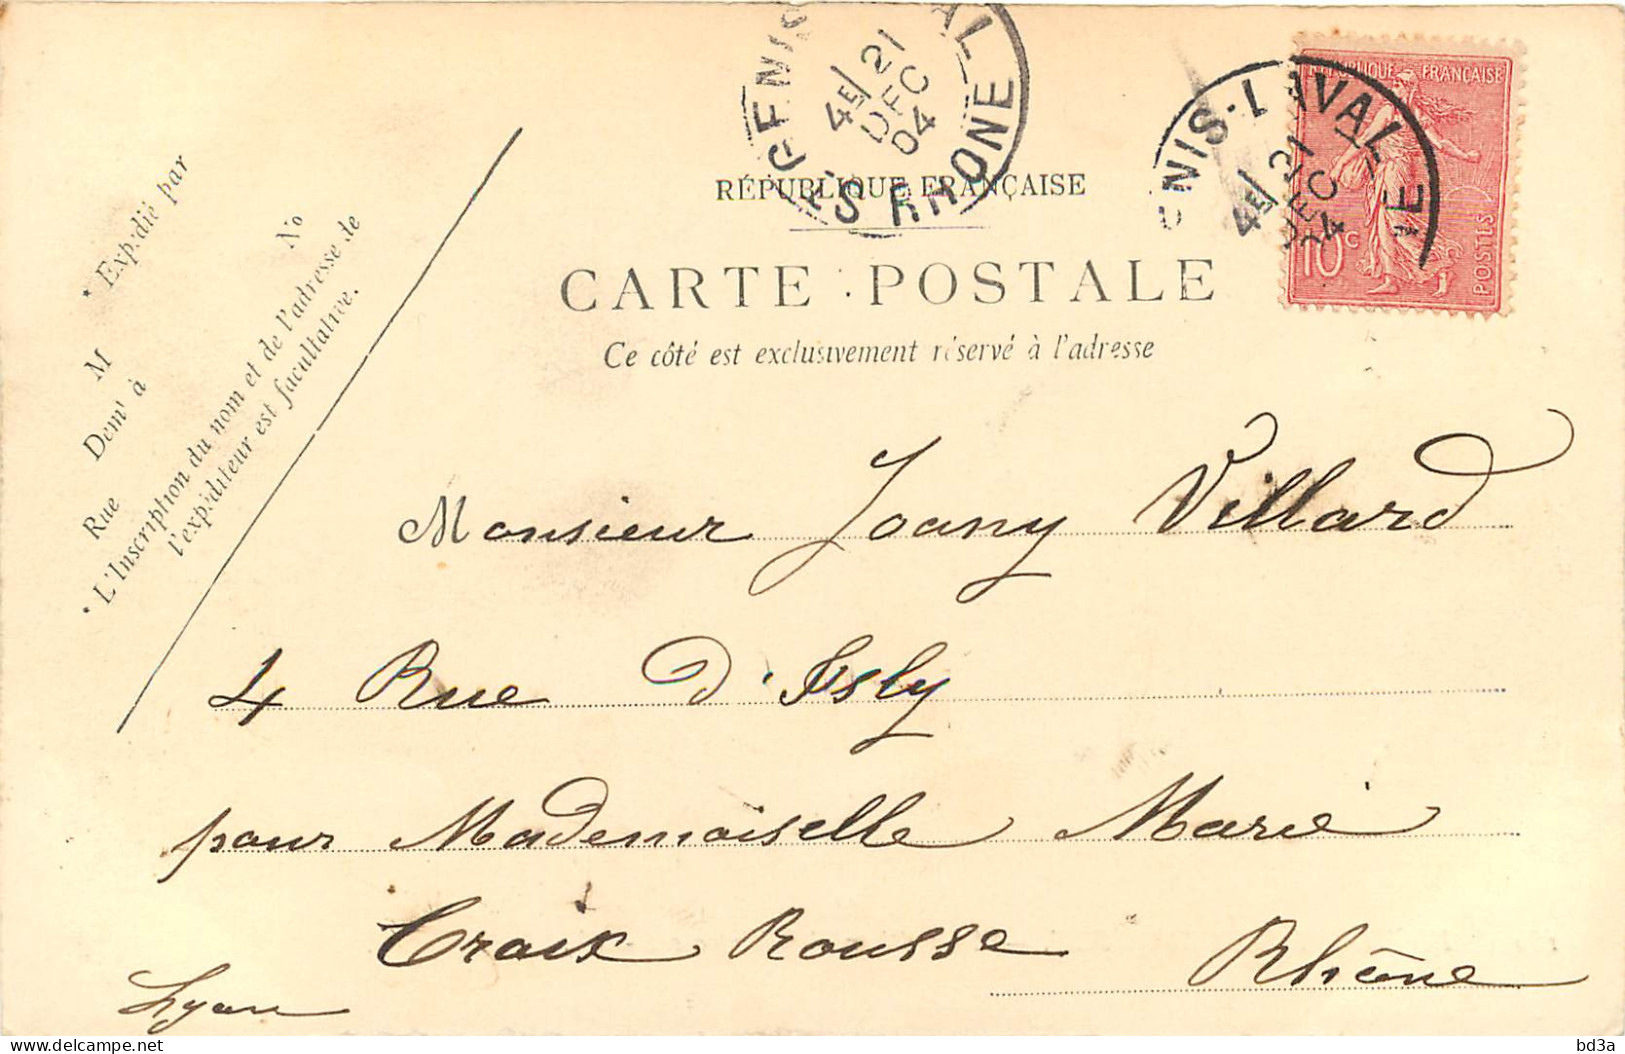 RÉPUBLIQUE FRANÇAISE
CARTE POSTALE
Ce côté est exclusivement réservé à l'adresse
* Expédié par
M
Demt à
Rue
No
* L'Inscription du nom et de l'adresse de
l'expéditeur est facultative.
GENIS LAVAL
4E/ 21
DEC
04
RHONE
NIS-LAVAL
4E/ 21
DEC
04
NE
RÉPUBLIQUE FRANÇAISE
10c
POSTES
Monsieur Joany Villard
4 Rue d'Isly
pour Mademoiselle Marie
Croix Rousse Rhône
Lyon
delcampe.net
bd3a